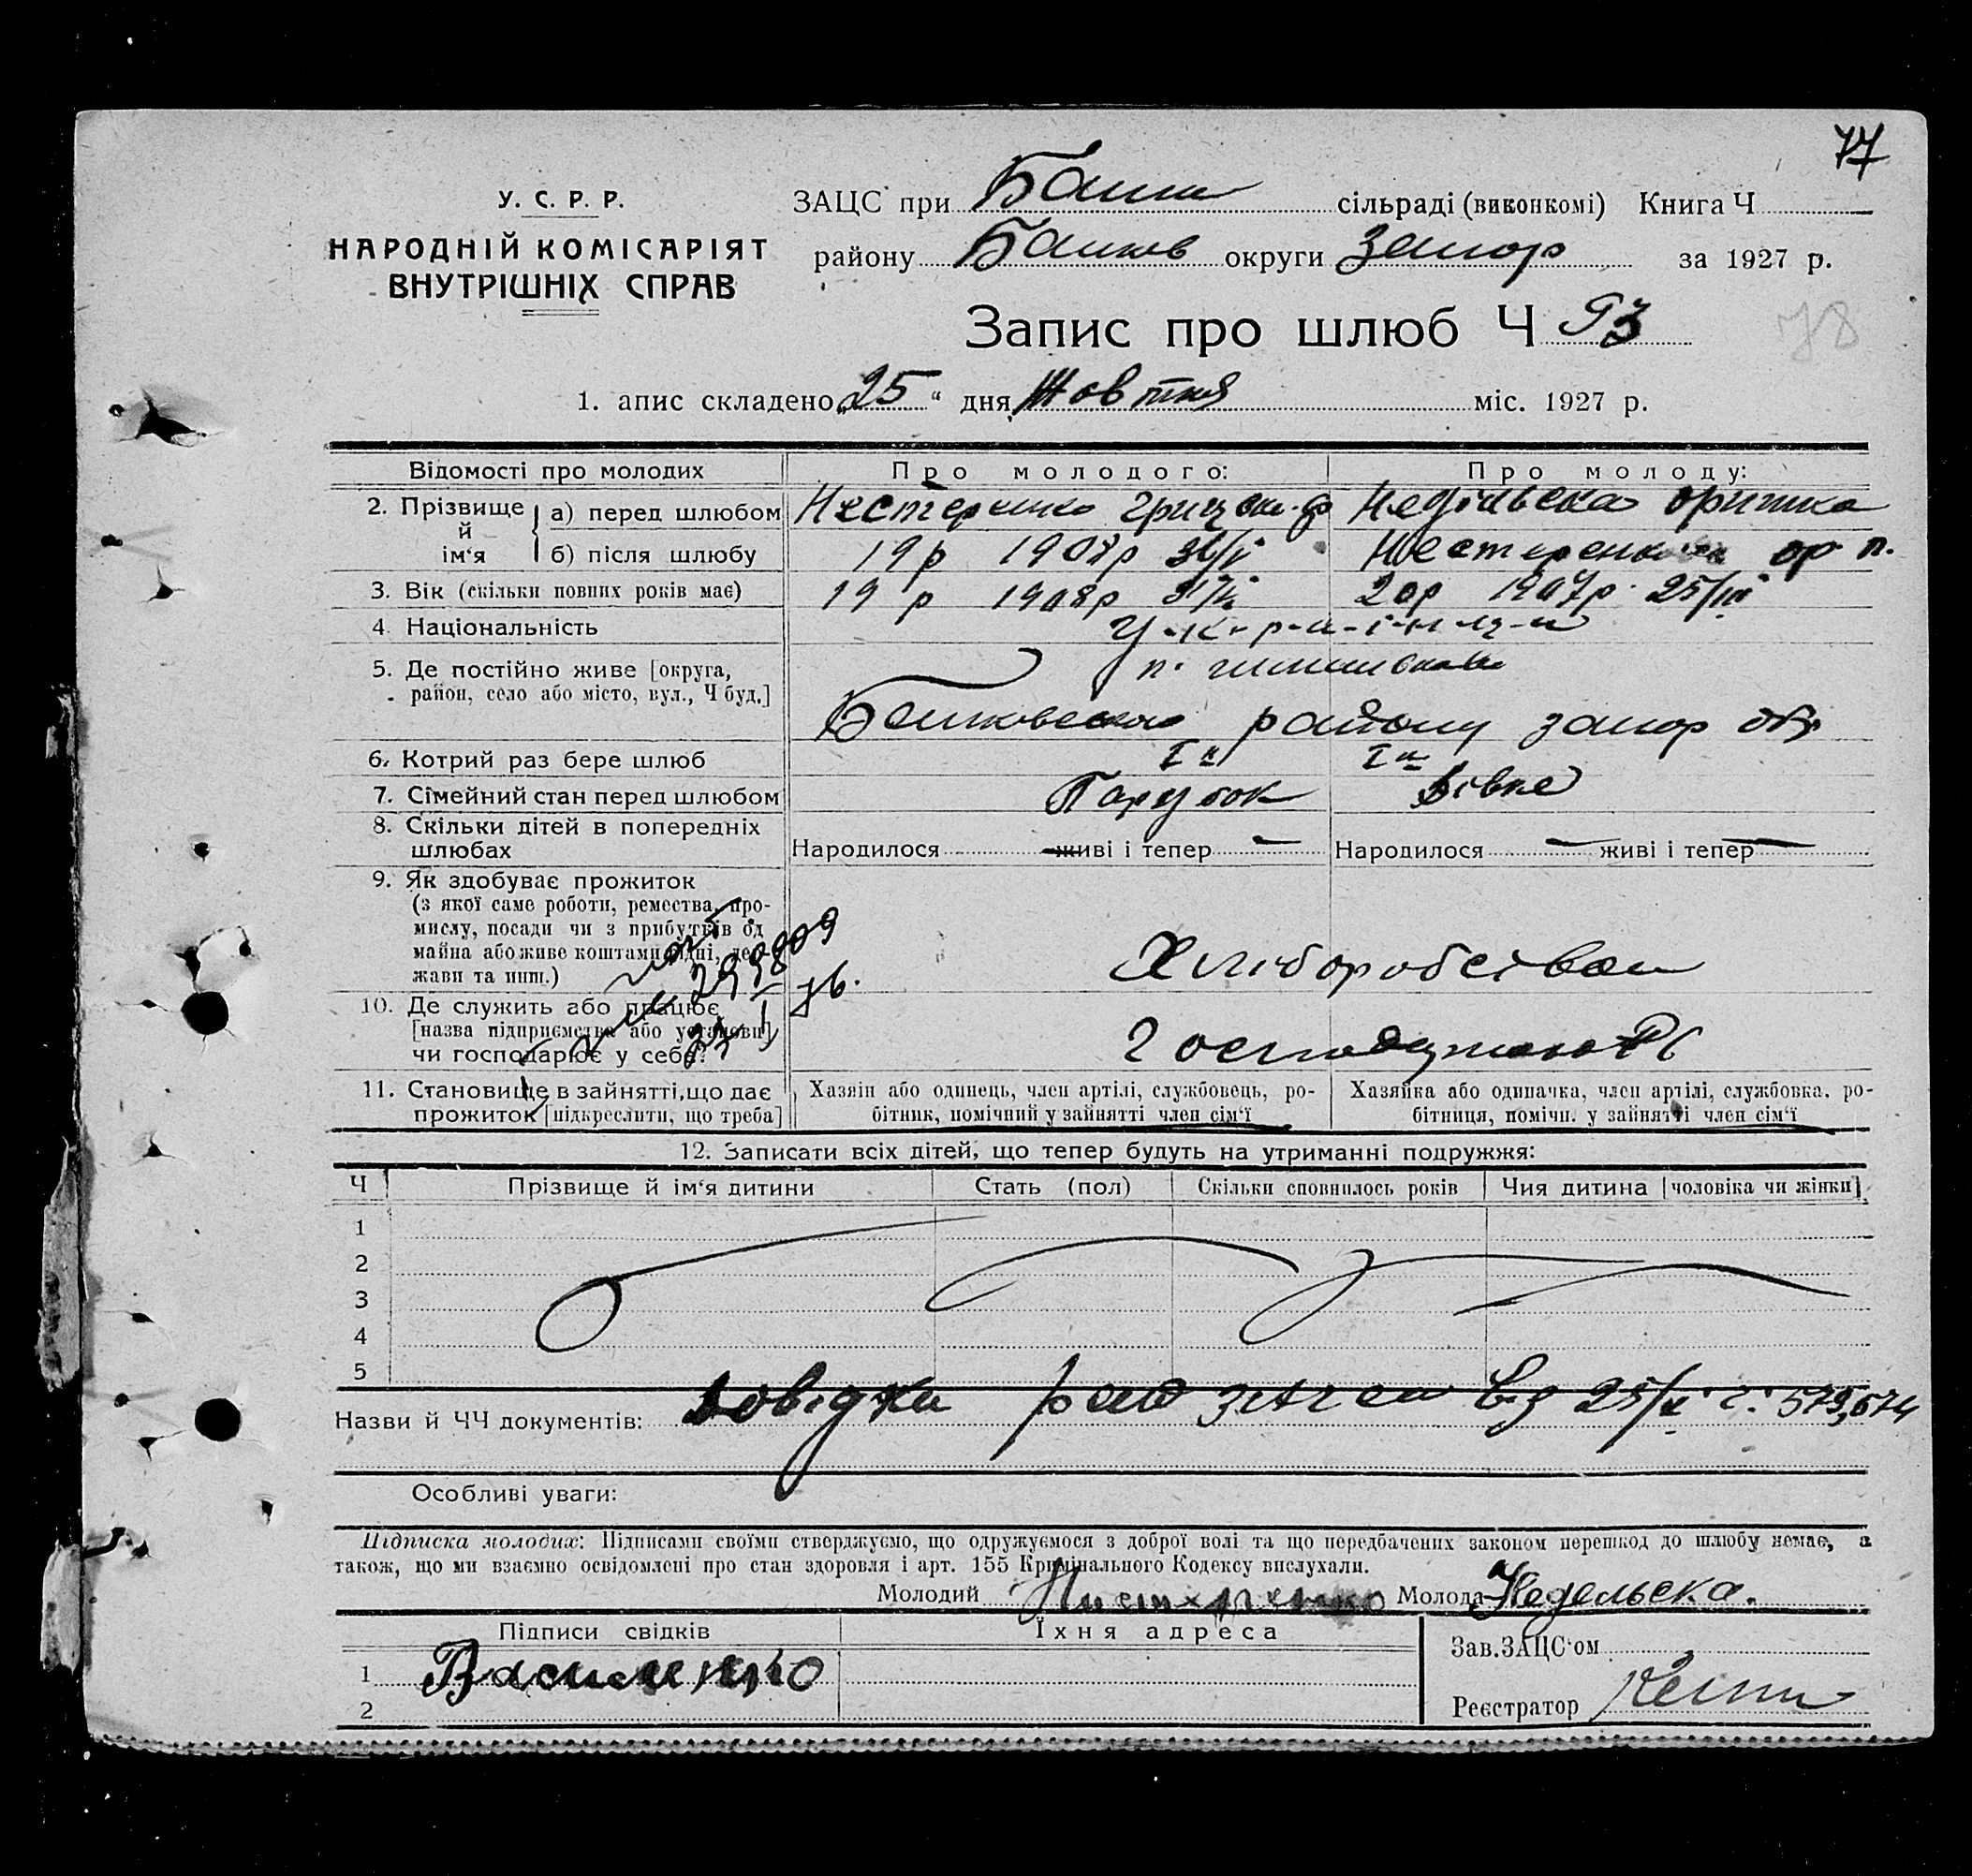 77
У. С. Р. Р.
НАРОДНІЙ КОМІСАРІЯТ
ВНУТРІШНІХ СПРАВ
ЗАЦС при сільраді (виконкомі) Книга Ч
району округи Запор за 1927 р.
Запис про шлюб Ч 93
78
1. апис складено „25“ дня Жовтня міс. 1927 р.
Відомості про молодих Про молодого: Про молоду:
2. Прізвище й ім‘я а) перед шлюбом Нестеренко Недільська Оришка
б) після шлюбу 19 р 1908р Нестеренко ор п.
3. Вік (скільки повних років має) 19 р 1908р 20р 1907р. 25/
4. Національність У-к-р-а-ї-н-ц-и
5. Де постійно живе [округа,
район, село або місто, вул., Ч буд.]
району запор
6. Котрий раз бере шлюб І й І й
7. Сімейний стан перед шлюбом Парубок Дівка
8. Скільки дітей в попередніх
шлюбах Народилося — живі і тепер — Народилося — живі і тепер —
9. Як здобуває прожиток
(з якої саме роботи, ремества, про-
мислу, посади чи з прибутків од
майна або живе коштами рідні, дер-
жави та инш.) Хліборобством
10. Де служить або працює
[назва підприємства або установи]
чи господарює у себе?
11. Становище в зайнятті, що дає
прожиток [підкреслити, що треба]
Хазяїн або одинець, член артілі, службовець, ро-
бітник, помічний у зайнятті член сім‘ї
Хазяйка або одиначка, член артілі, службовка, ро-
бітниця, помічн. у зайнятті член сім‘ї
12. Записати всіх дітей, що тепер будуть на утриманні подружжя:
Ч Прізвище й ім‘я дитини Стать (пол) Скільки сповнилось років Чия дитина [чоловіка чи жінки]
1
2
3
4
5
Назви й ЧЧ документів: Довідки від 25/
Особливі уваги:
Підписка молодих: Підписами своїми стверджуємо, що одружуємося з доброї волі та що передбачених законом перешкод до шлюбу немає, а
також, що ми взаємно освідомлені про стан здоровля і арт. 155 Кримінального Кодексу вислухали.
Молодий Молода Недельска.
Підписи свідків Їхня адреса
Зав. ЗАЦС‘ом
1 Василенко
2
Реєстратор